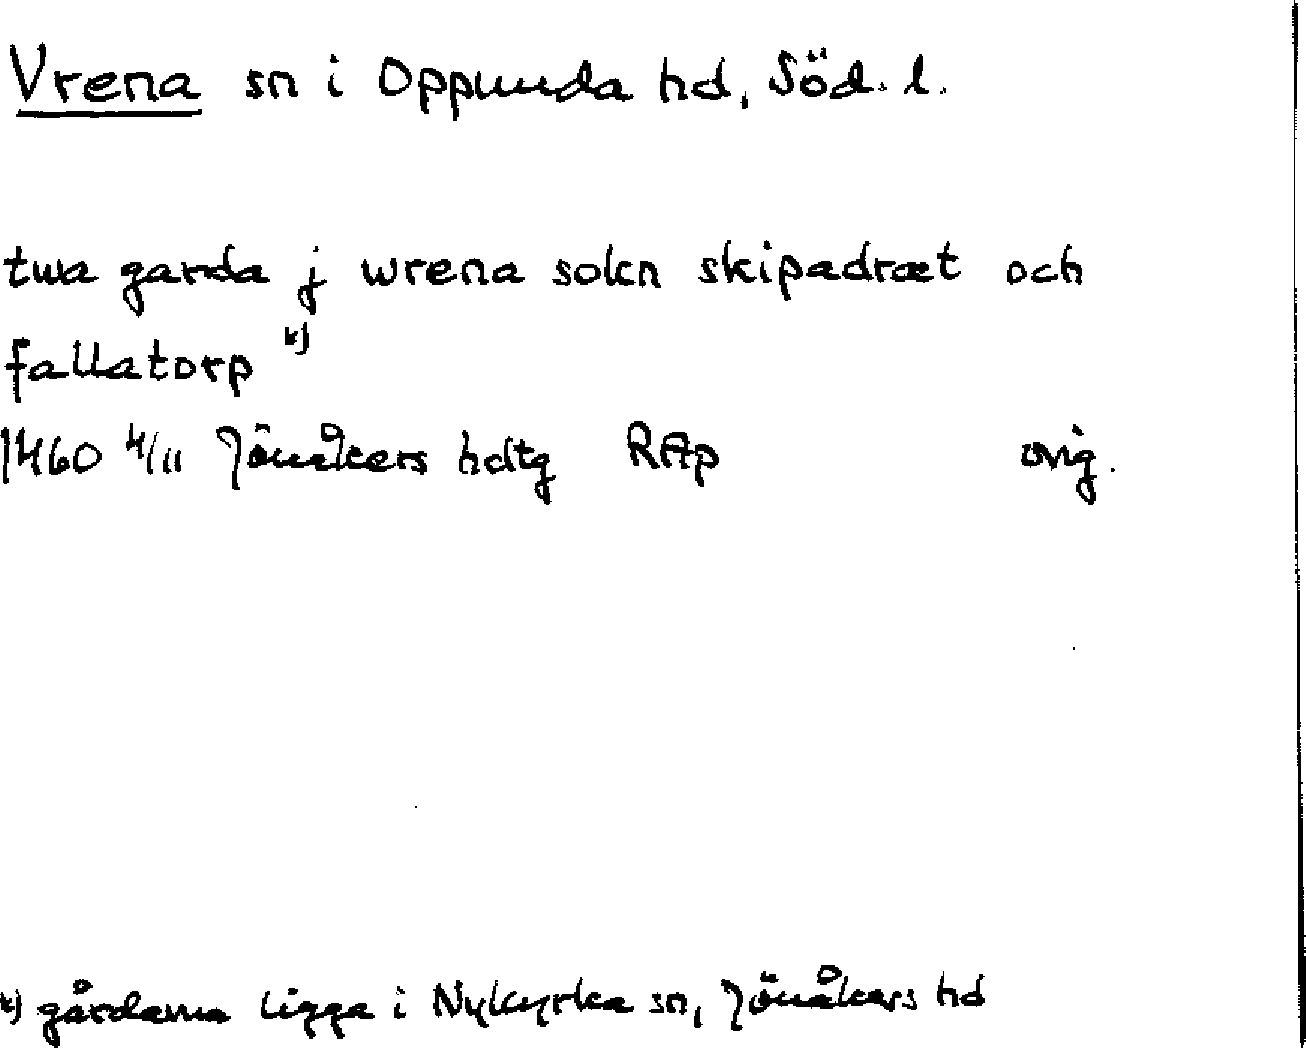 Vrena sn i Oppunda hd, Söd. l.
twa garda j wrena sokn skipadræt och
fallatorp x)
1460 4/11 Jönåkers hdtg RAp orig.
x) gårdarna ligga i Nykyrka sn, Jönåkers hd